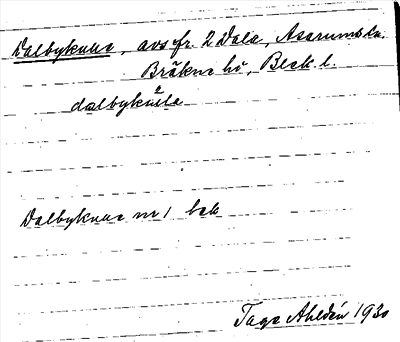 Dalbykulle, avs. fr. 2 Dala, Asarums sn.
Bräkne hd, Blek. l.
dalbykulle
Dalbykulle nr 1 bek
Tage Ahldén 1930